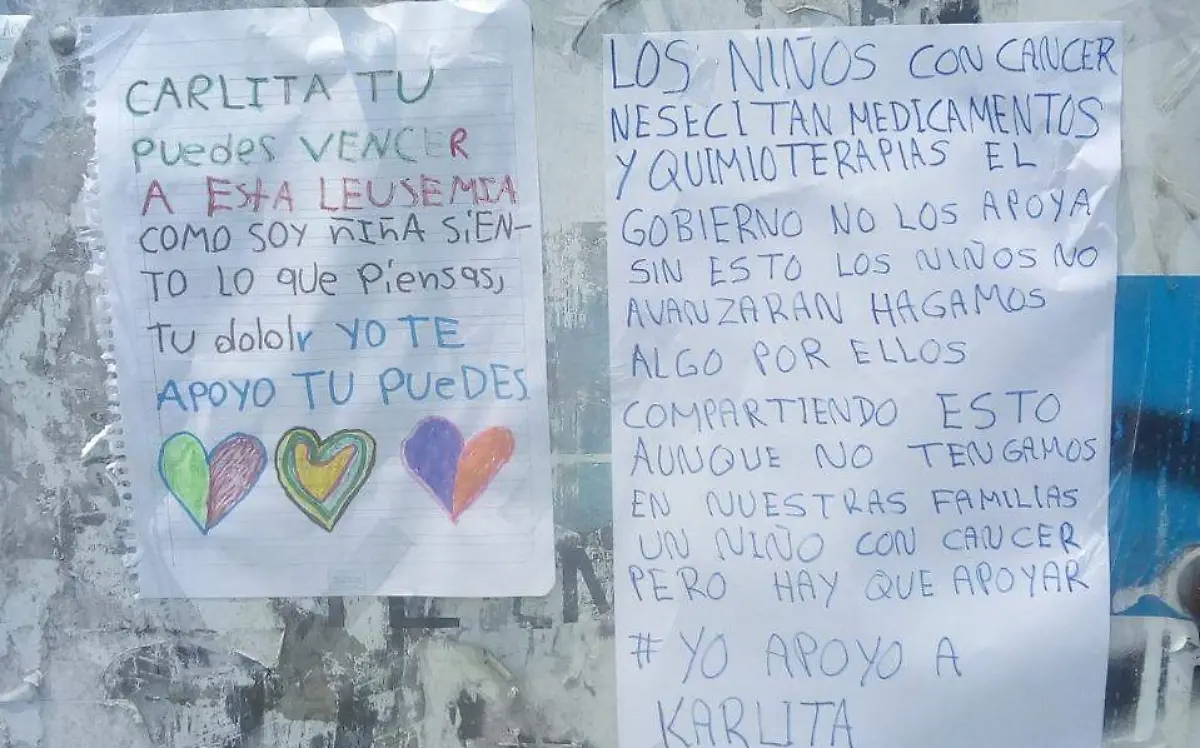 CARLITA TU
PUEdES VENCER
A ESTA LEUSEMIA
COMO SOY ÑIÑA SiEN-
TO LO que Piensas,
TU dololr YO TE
APOYO TU PUEDES
LOS NIÑOS CON CANCER
NESECITAN MEDICAMENTOS
Y QUIMIOTERAPIAS EL
GOBIERNO NO LOS APOYA
SIN ESTO LOS NIÑOS NO
AVANZARAN HAGAMOS
ALGO POR ELLOS
COMPARTIENDO ESTO
AUNQUE NO TENGAMOS
EN NUESTRAS FAMILIAS
UN NIÑO CON CANCER
PERO HAY QUE APOYAR
# YO APOYO A
KARLITA